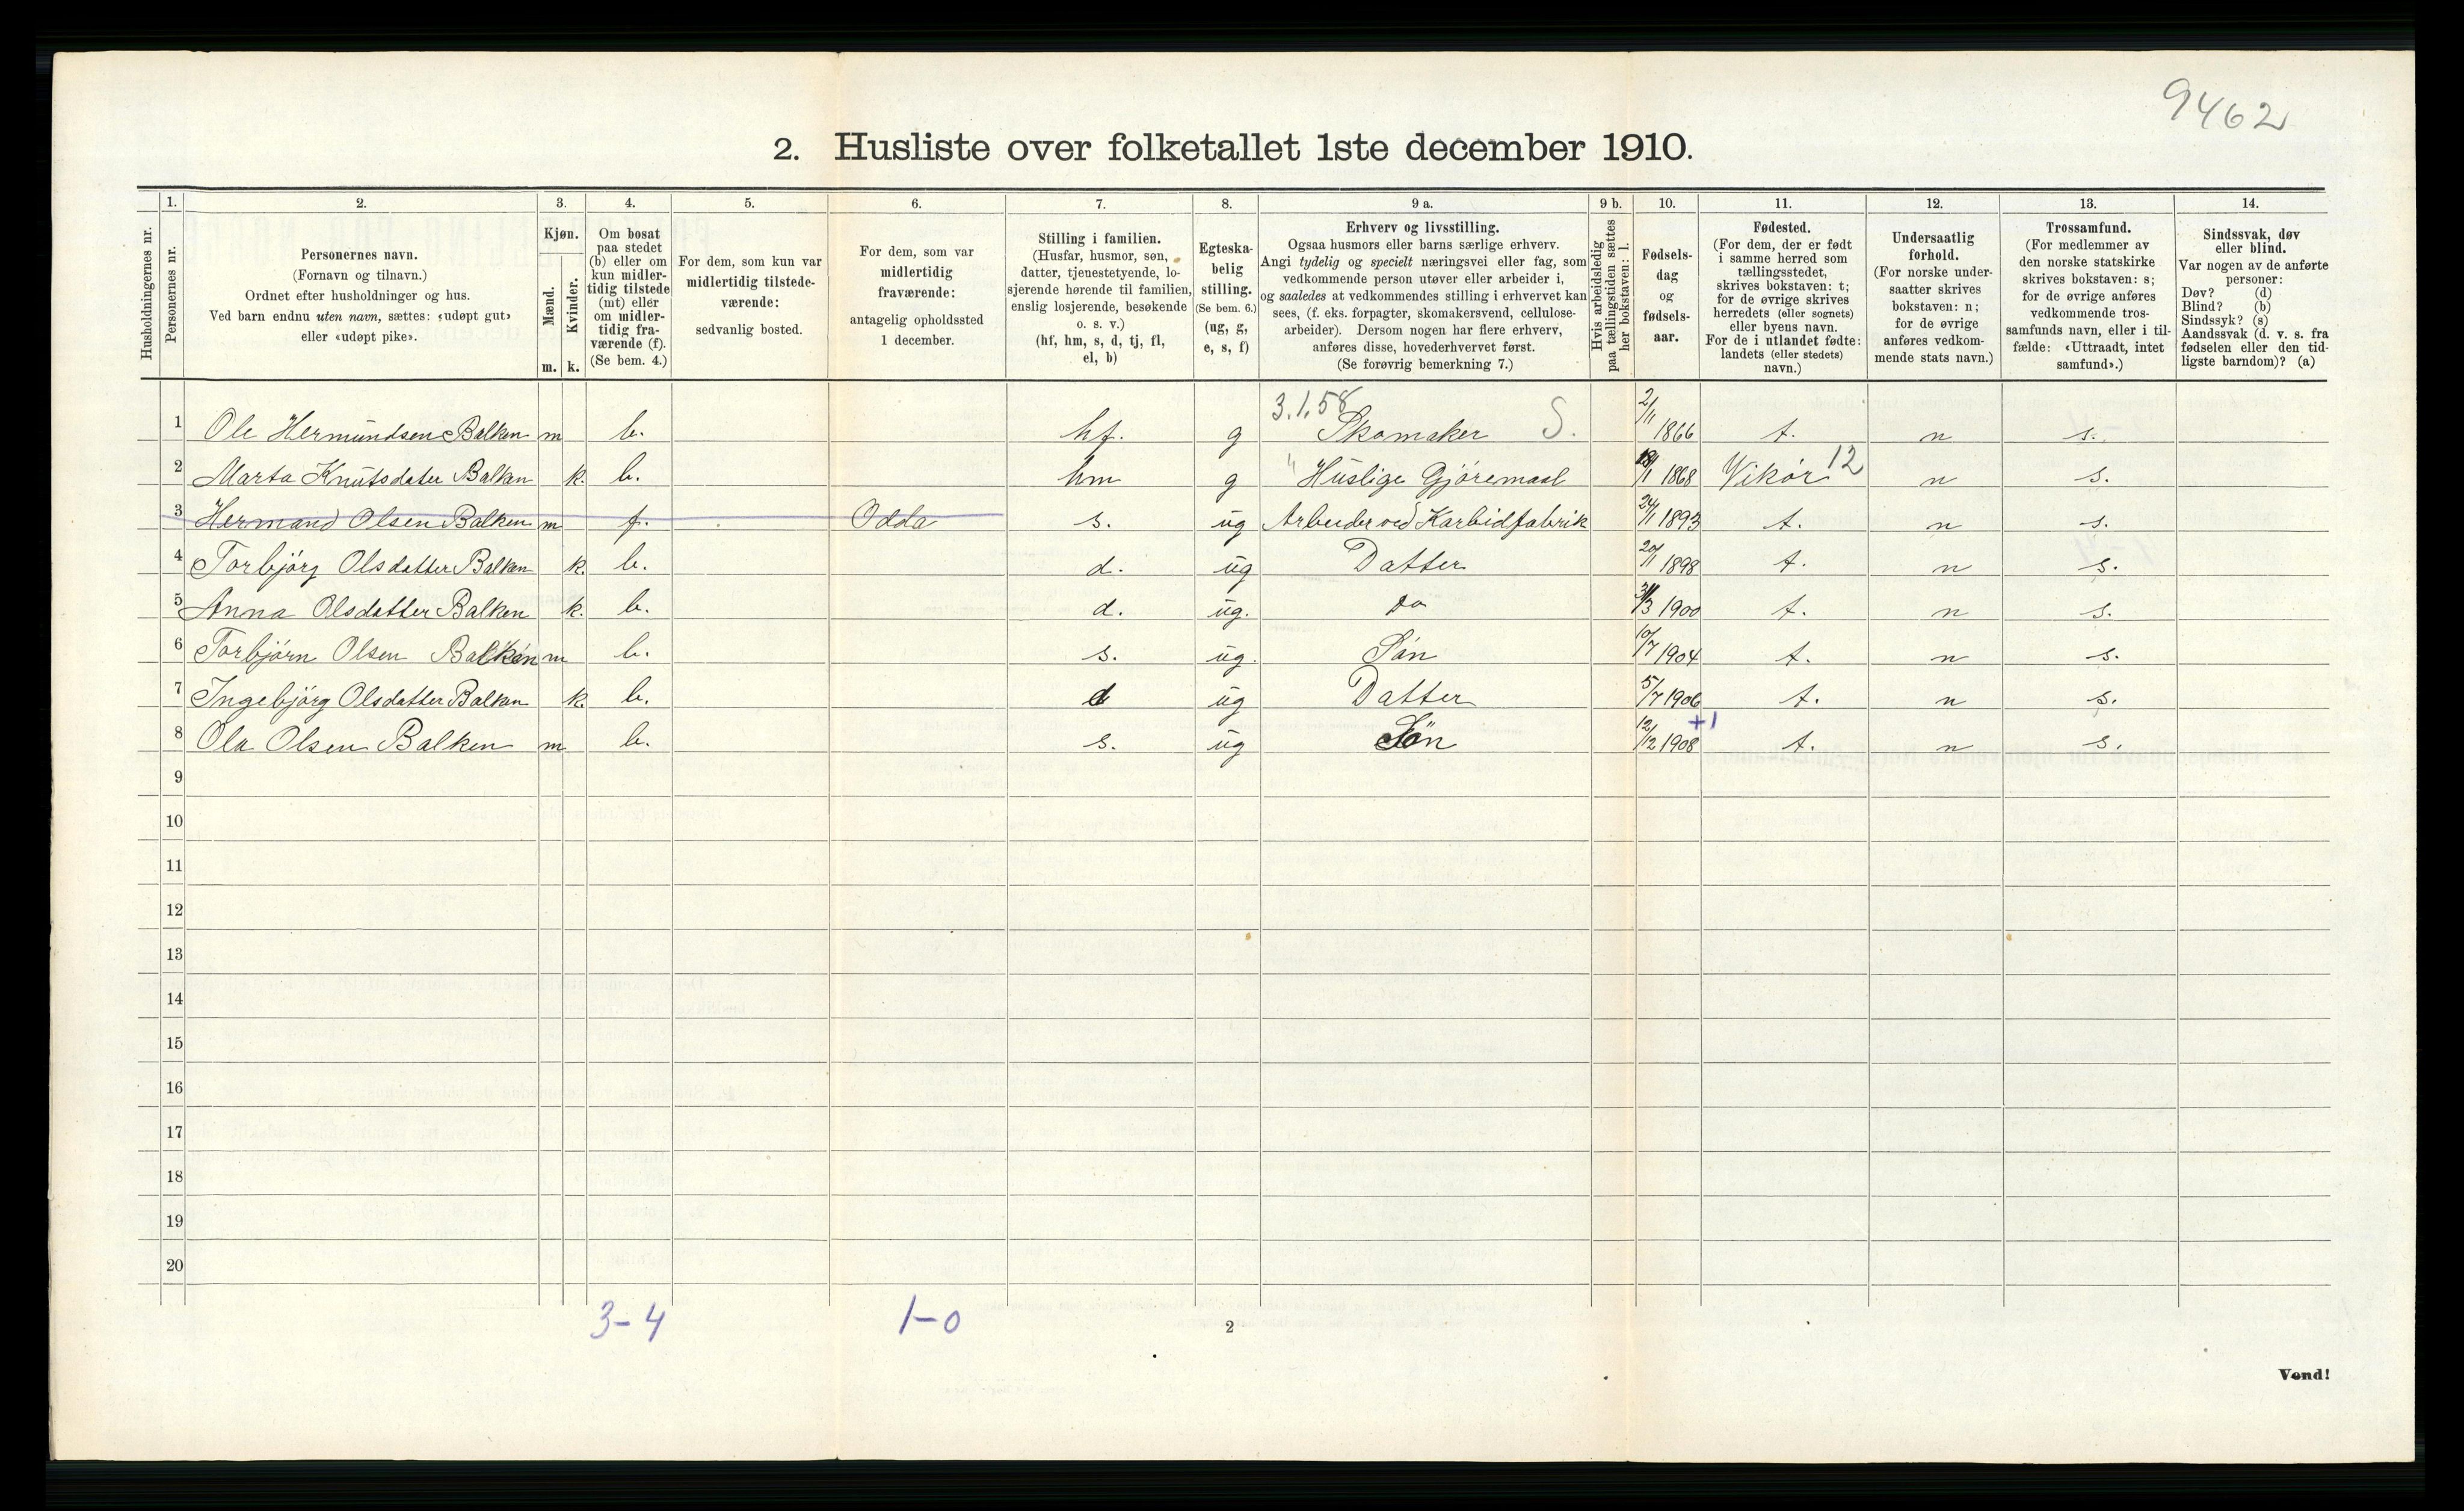 9462
2. Husliste over folketallet 1ste december 1910.
Husholdningernes nr.
1. Personernes nr.
2. Personernes navn. (Fornavn og tilnavn.) Ordnet efter husholdninger og hus. Ved barn endnu uten navn, sættes: «udøpt gut» eller «udøpt pike».
3. Kjøn. Mænd. Kvinder. m. k.
4. Om bosat paa stedet (b) eller om kun midlertidig tilstede (mt) eller om midlertidig fraværende (f). (Se bem. 4.)
5. For dem, som kun var midlertidig tilstedeværende: sedvanlig bosted.
6. For dem, som var midlertidig fraværende: antagelig opholdssted 1 december.
7. Stilling i familien. (Husfar, husmor, søn, datter, tjenestetyende, losjerende hørende til familien, enslig losjerende, besøkende o. s. v.) (hf, hm, s, d, tj, fl, el, b)
8. Egteskabelig stilling. (Se bem. 6.) (ug, g, e, s, f)
9 a. Erhverv og livsstilling. Ogsaa husmors eller barns særlige erhverv. Angi tydelig og specielt næringsvei eller fag, som vedkommende person utøver eller arbeider i, og saaledes at vedkommendes stilling i erhvervet kan sees, (f. eks. forpagter, skomakersvend, cellulosearbeider). Dersom nogen har flere erhverv, anføres disse, hovederhvervet først. (Se forøvrig bemerkning 7.)
9 b. Hvis arbeidsledig paa tællingstiden sættes her bokstaven: l.
10. Fødselsdag og fødselsaar.
11. Fødested. (For dem, der er født i samme herred som tællingsstedet, skrives bokstaven: t; for de øvrige skrives herredets (eller sognets) eller byens navn. For de i utlandet fødte: landets (eller stedets) navn.)
12. Undersaatlig forhold. (For norske undersaatter skrives bokstaven: n; for de øvrige anføres vedkommende stats navn.)
13. Trossamfund. (For medlemmer av den norske statskirke skrives bokstaven: s; for de øvrige anføres vedkommende trossamfunds navn, eller i tilfælde: «Uttraadt, intet samfund».)
14. Sindssvak, døv eller blind. Var nogen av de anførte personer: Døv? (d) Blind? (b) Sindssyk? (s) Aandssvak (d. v. s. fra fødselen eller den tidligste barndom)? (a)
3.1.58
1 Ole Hermundsen Balken m b. hf. g Skomaker S. 2/11 1866 t. n s.
2 Marta Knutsdater Balken k. b. hm g " Huslige Gjöremaal 1868 Vikör 12 n s.
3 Hermand Olsen Balken m f. Odda s. ug Arbeider ved Karbidfabrik 24/11 1893 t. n s.
4 Torbjörg Olsdatter Balken k. b. d. ug Datter 20/11 1898 t. n s.
5 Anna Olsdatter Balken k. b. d. ug. Do 1900 t. n s.
6 Torbjörn Olsen Balken m b. s. ug. Sön 10/7 1904 t. n s.
7 Ingebjörg Olsdatter Balken k. b. d ug Datter 5/7 1906 t. n s.
+1
8 Ola Olsen Balken m b. s. ug Sön 12/12 1908 t. n s.
9
10
11
12
13
14
15
16
17
18
19
20
3-4 1-0
2
Vend!